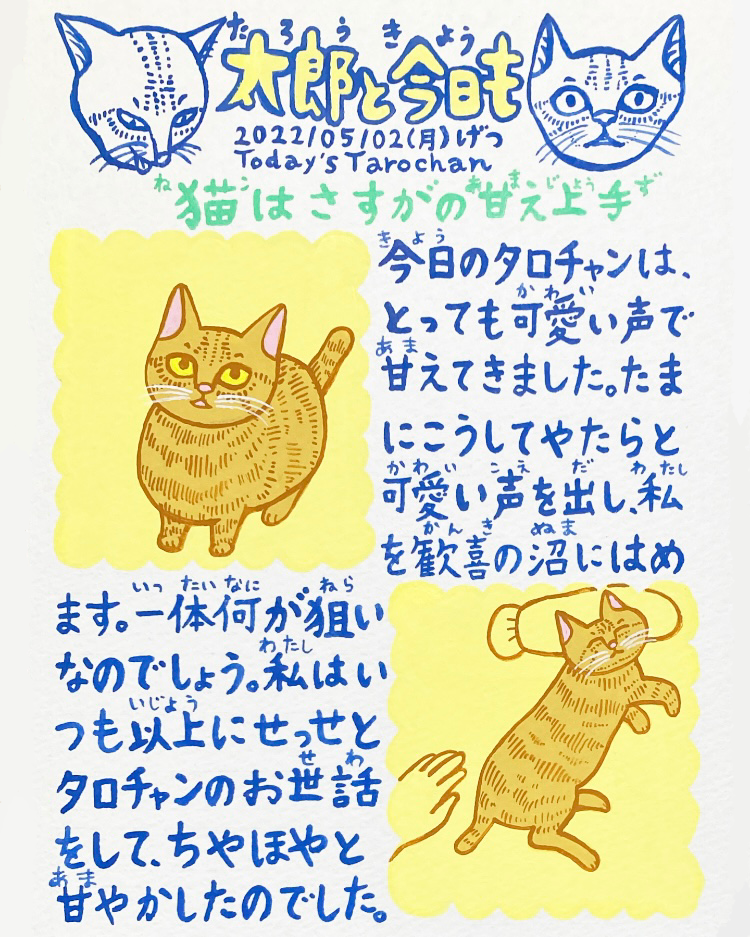 たろう きょう
太郎と今日も
2022/05/02(月)げつ
Today's Tarochan
ねこ あま じょうず
猫はさすがの甘え上手
きょう
今日のタロチャンは、
かわい
とっても可愛い声で
あま
甘えてきました。たま
にこうしてやたらと
かわい こえ だ わたし
可愛い声を出し、私
かんき ぬま
を歓喜の沼にはめ
いったいなに ねら
ます。一体何が狙い
わたし
なのでしょう。私はい
いじょう
つも以上にせっせと
せわ
タロチャンのお世話
をして、ちやほやと
あま
甘やかしたのでした。